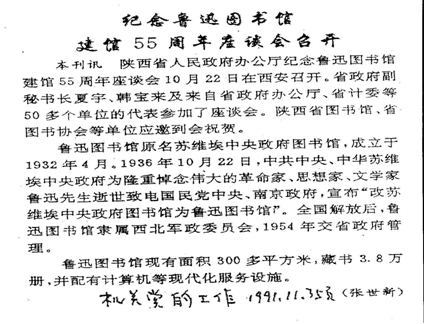 纪念鲁迅图书馆
建馆55周年座谈会召开
本刊讯 陕西省人民政府办公厅纪念鲁迅图书馆
建馆55周年座谈会10月22日在西安召开。省政府副
秘书长夏宇、韩宝来及来自省政府办公厅、省计委等
50多个单位的代表参加了座谈会。陕西省图书馆、省
图书协会等单位应邀到会祝贺。
鲁迅图书馆原名苏维埃中央政府图书馆，成立于
1932年4月。1936年10月22日，中共中央、中华苏维
埃中央政府为隆重悼念伟大的革命家、思想家、文学家
鲁迅先生逝世致电国民党中央、南京政府，宣布“改苏
维埃中央政府图书馆为鲁迅图书馆”。全国解放后，鲁
迅图书馆隶属西北军政委员会，1954年交省政府管
理。
鲁迅图书馆现有面积300多平方米，藏书3.8万
册，并配有计算机等现代化服务设施。
机关党的工作 1991.11.35页（张世新）